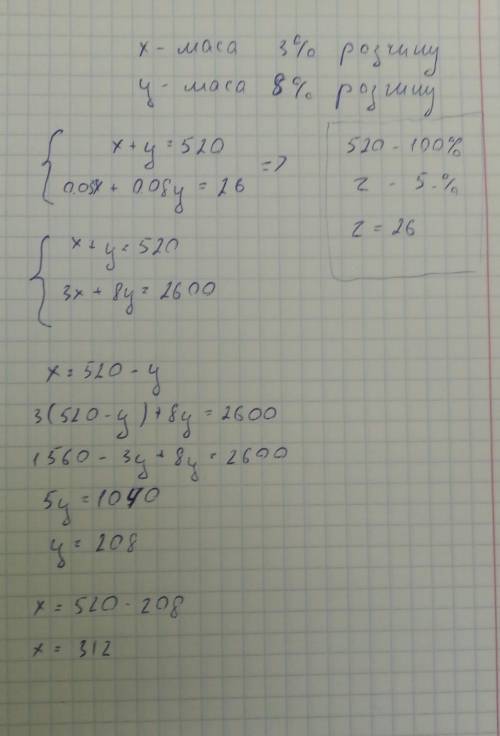 x - маса 3% розчину
y - маса 8% розчину
x + y = 520
0.03x + 0.08y = 26 =>
520 - 100%
z - 5.%
z = 26
x + y = 520
3x + 8y = 2600
x = 520 - y
3(520 - y) + 8y = 2600
1560 - 3y + 8y = 2600
5y = 1040
y = 208
x = 520 - 208
x = 312